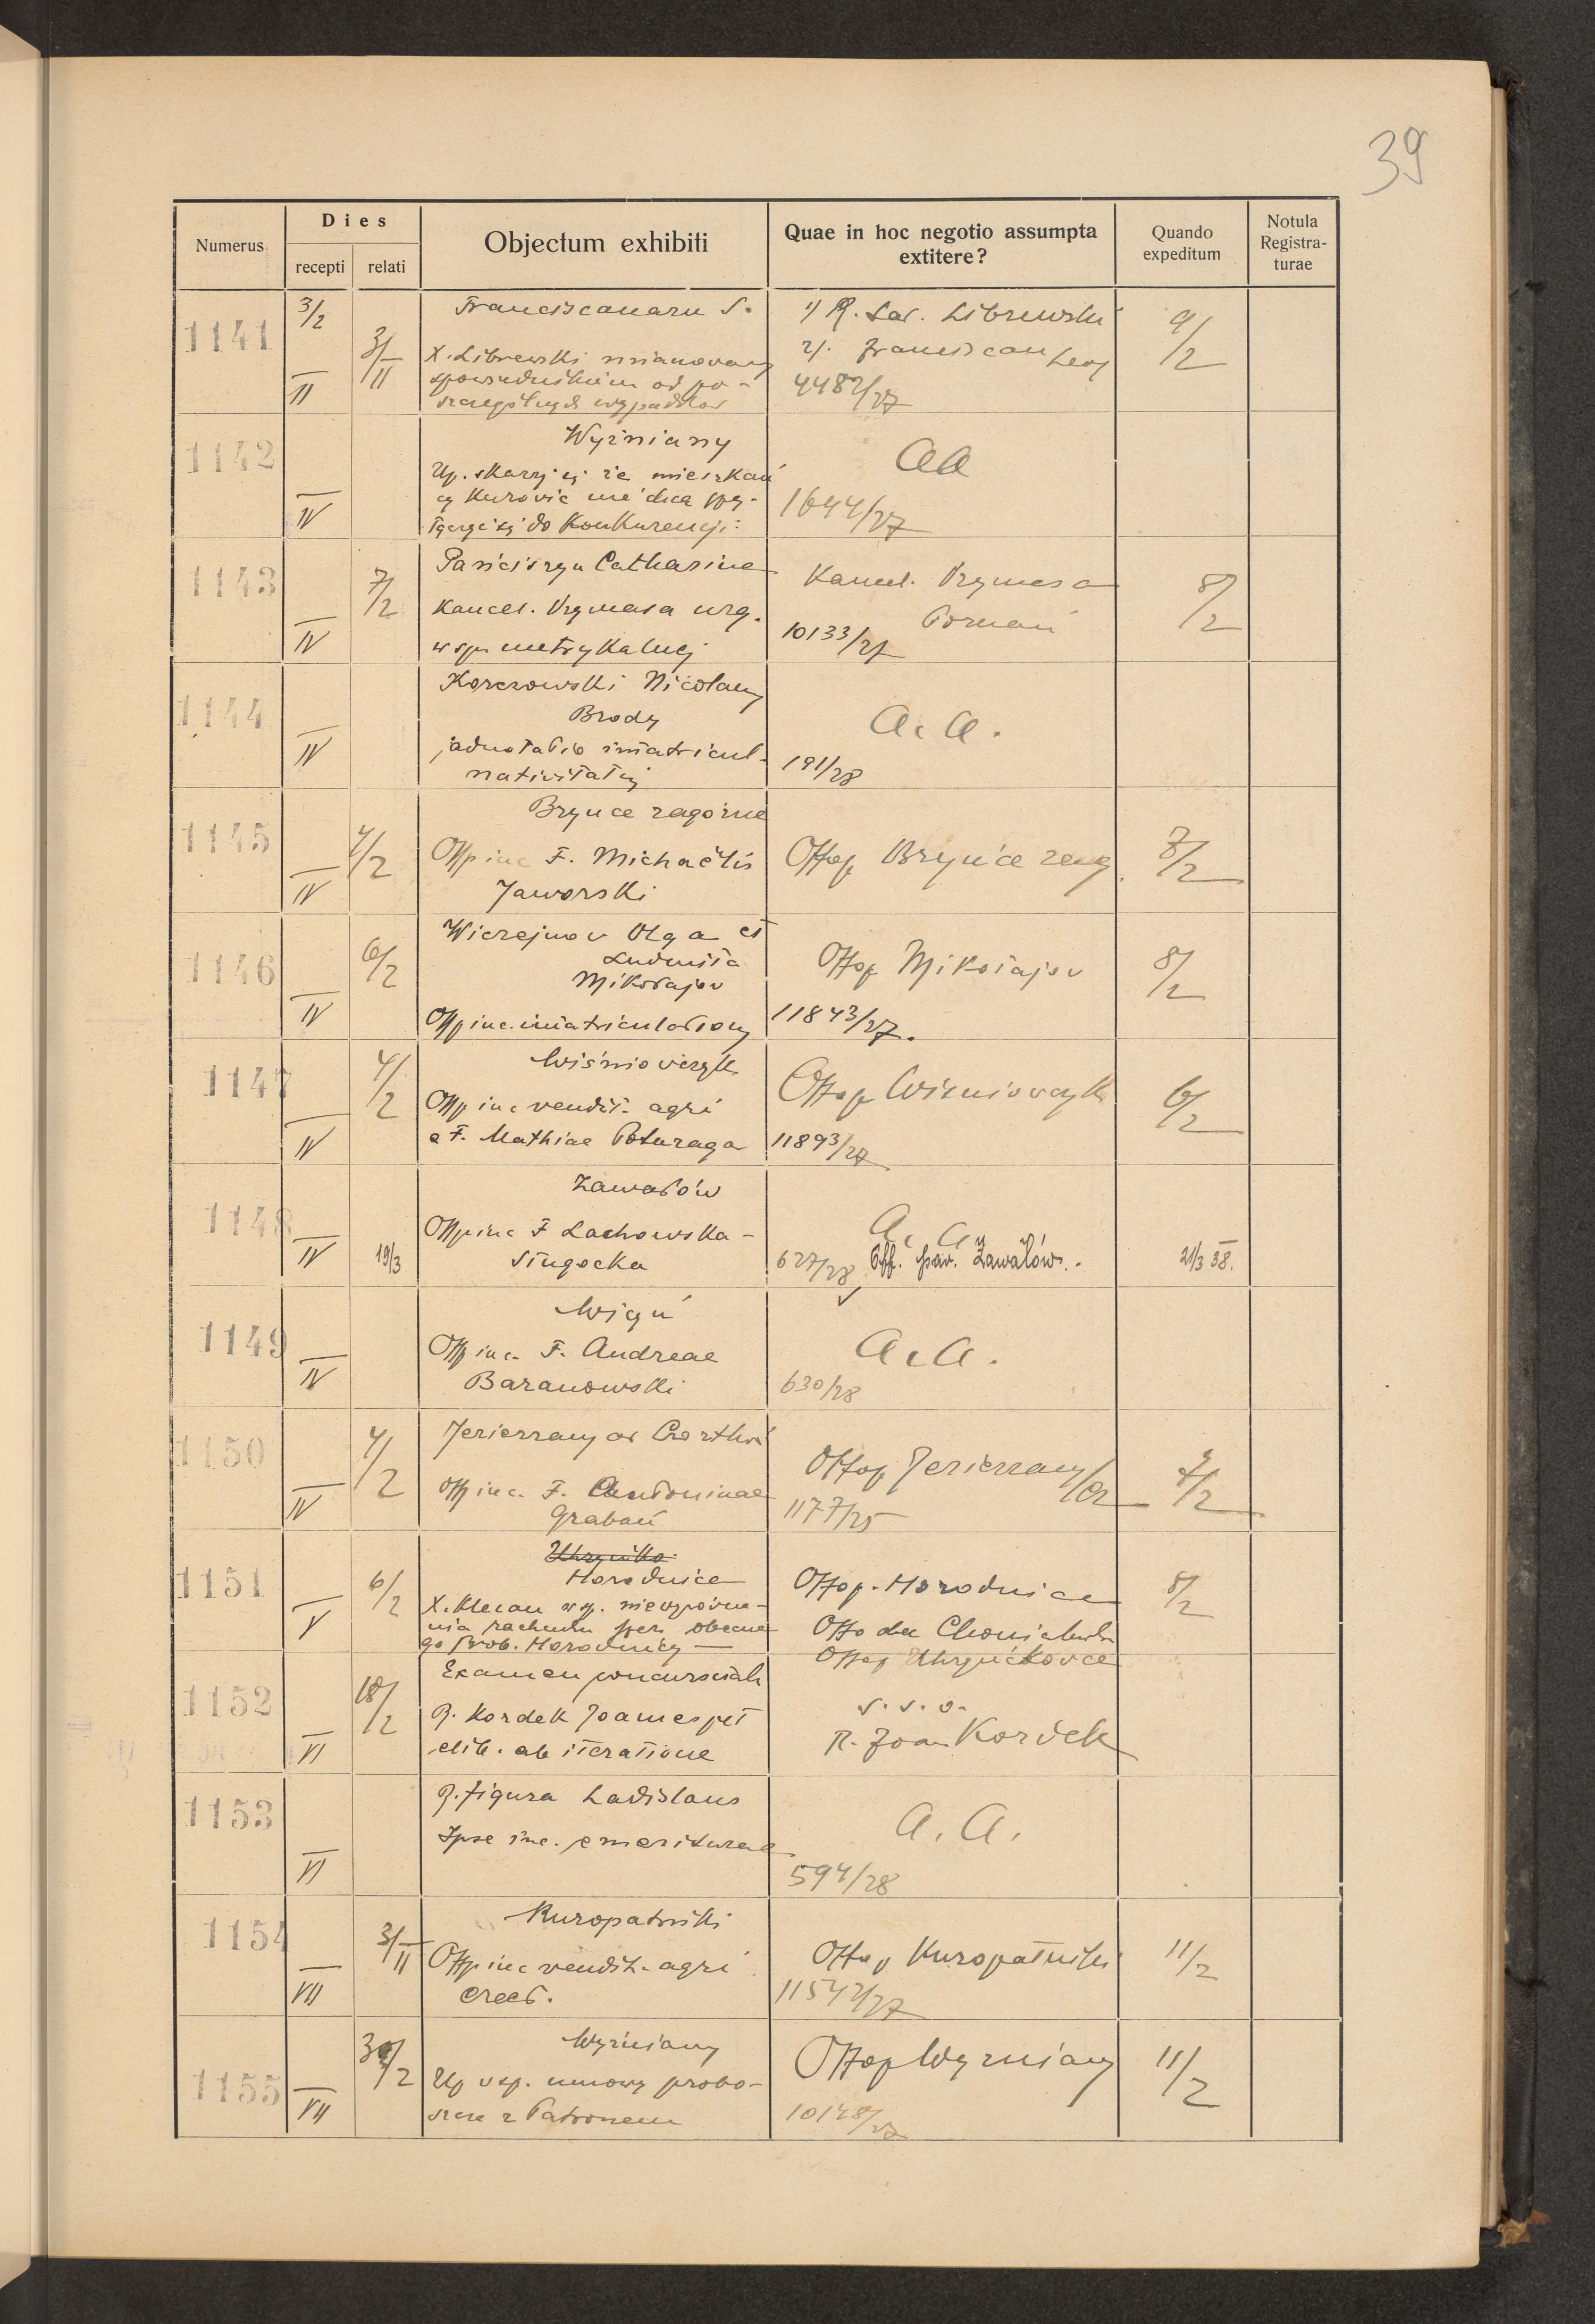 39
Numerus
Dies
recepti relati
Objectum exhibiti
Quae in hoc negotio assumpta
extitere?
Quando
expeditum
Notula
Registra-
turae
1141
3/2
II
3/II
Franciscanaru S.
X. Librewski mianowany
spowiednikiem od po-
szczególnych wypadków
1/ R. Lad. Librewski
2/. Franciscan Leop
4482/27
9/2
1142
IV
Wyżniany
Up. skarży się że mieszkań
cy Kurovic nie chcą
do Konkurencji
aa
1644/27
1143
IV
7/2
Catharine
Kancel. Prymasa urg.
w spr. metrykalnej
Kancel. Prymasa
Poznań
10133/27
8/2
1144
IV
Korczowski Nicolaus
Brody
adnotatio imatricul.
nativitatis
a. a.
191/28
1145
IV
4/2
Brynce zagórne
Offp inc F. Michaelis
Jaworski
Offop Brynce zag.
8/2
1146
IV
6/2
Olga et
Ludmiła
Mikołajov
Offp inc. imatriculationis
Offop Mikołajov
11843/27.
8/2
1147
IV
4/2
Wiśnioveryk
Offp inc vendit. agri
a F. Mathiae Poturaga
Offop Wiśniovczyk
11893/27
6/2
1148
IV
19/3
Zawałów
Offp inc F Lachowska -
Sługocka
a. a
627/28 Off. par. Zawałów.
21/3 38.
1149
IV
Wigń
Offp inc. F. Andreae
Baranowski
a. a.
630/28
1150
IV
4/2
Jezierzany ad Czortków
Offp inc. F. Antoninae
Grabań
Offop Jezierzany/Cz
1177/25
7/2
1151
V
6/2
Uhryńko
Horodnica
X. Klecan w sp. niewyrówna-
nia rachunku przez obecne
go prob. Horodnicy
Offop. Horodnica
Offo dec Chonia
Offop Uhryńkovce
8/2
1152
VI
18/2
Examen concursuale
R. Kordek Joannes pet
elib. ab iteratione
s. s. o.
R. Joan Kordek
1153
VI
R. Figura Ladislaus
Ipse inc. emeriturae
a. a.
594/28
1154
VII
3/II
Kuropatniki
Offp inc vendit. agri
erect.
Offop Kuropatniki
11542/27
11/2
1155
VII
30/2
Wyżniany
Up vsp. umowy probo-
szcza z Patronem
Offop Wyżniany
10148/27
11/2